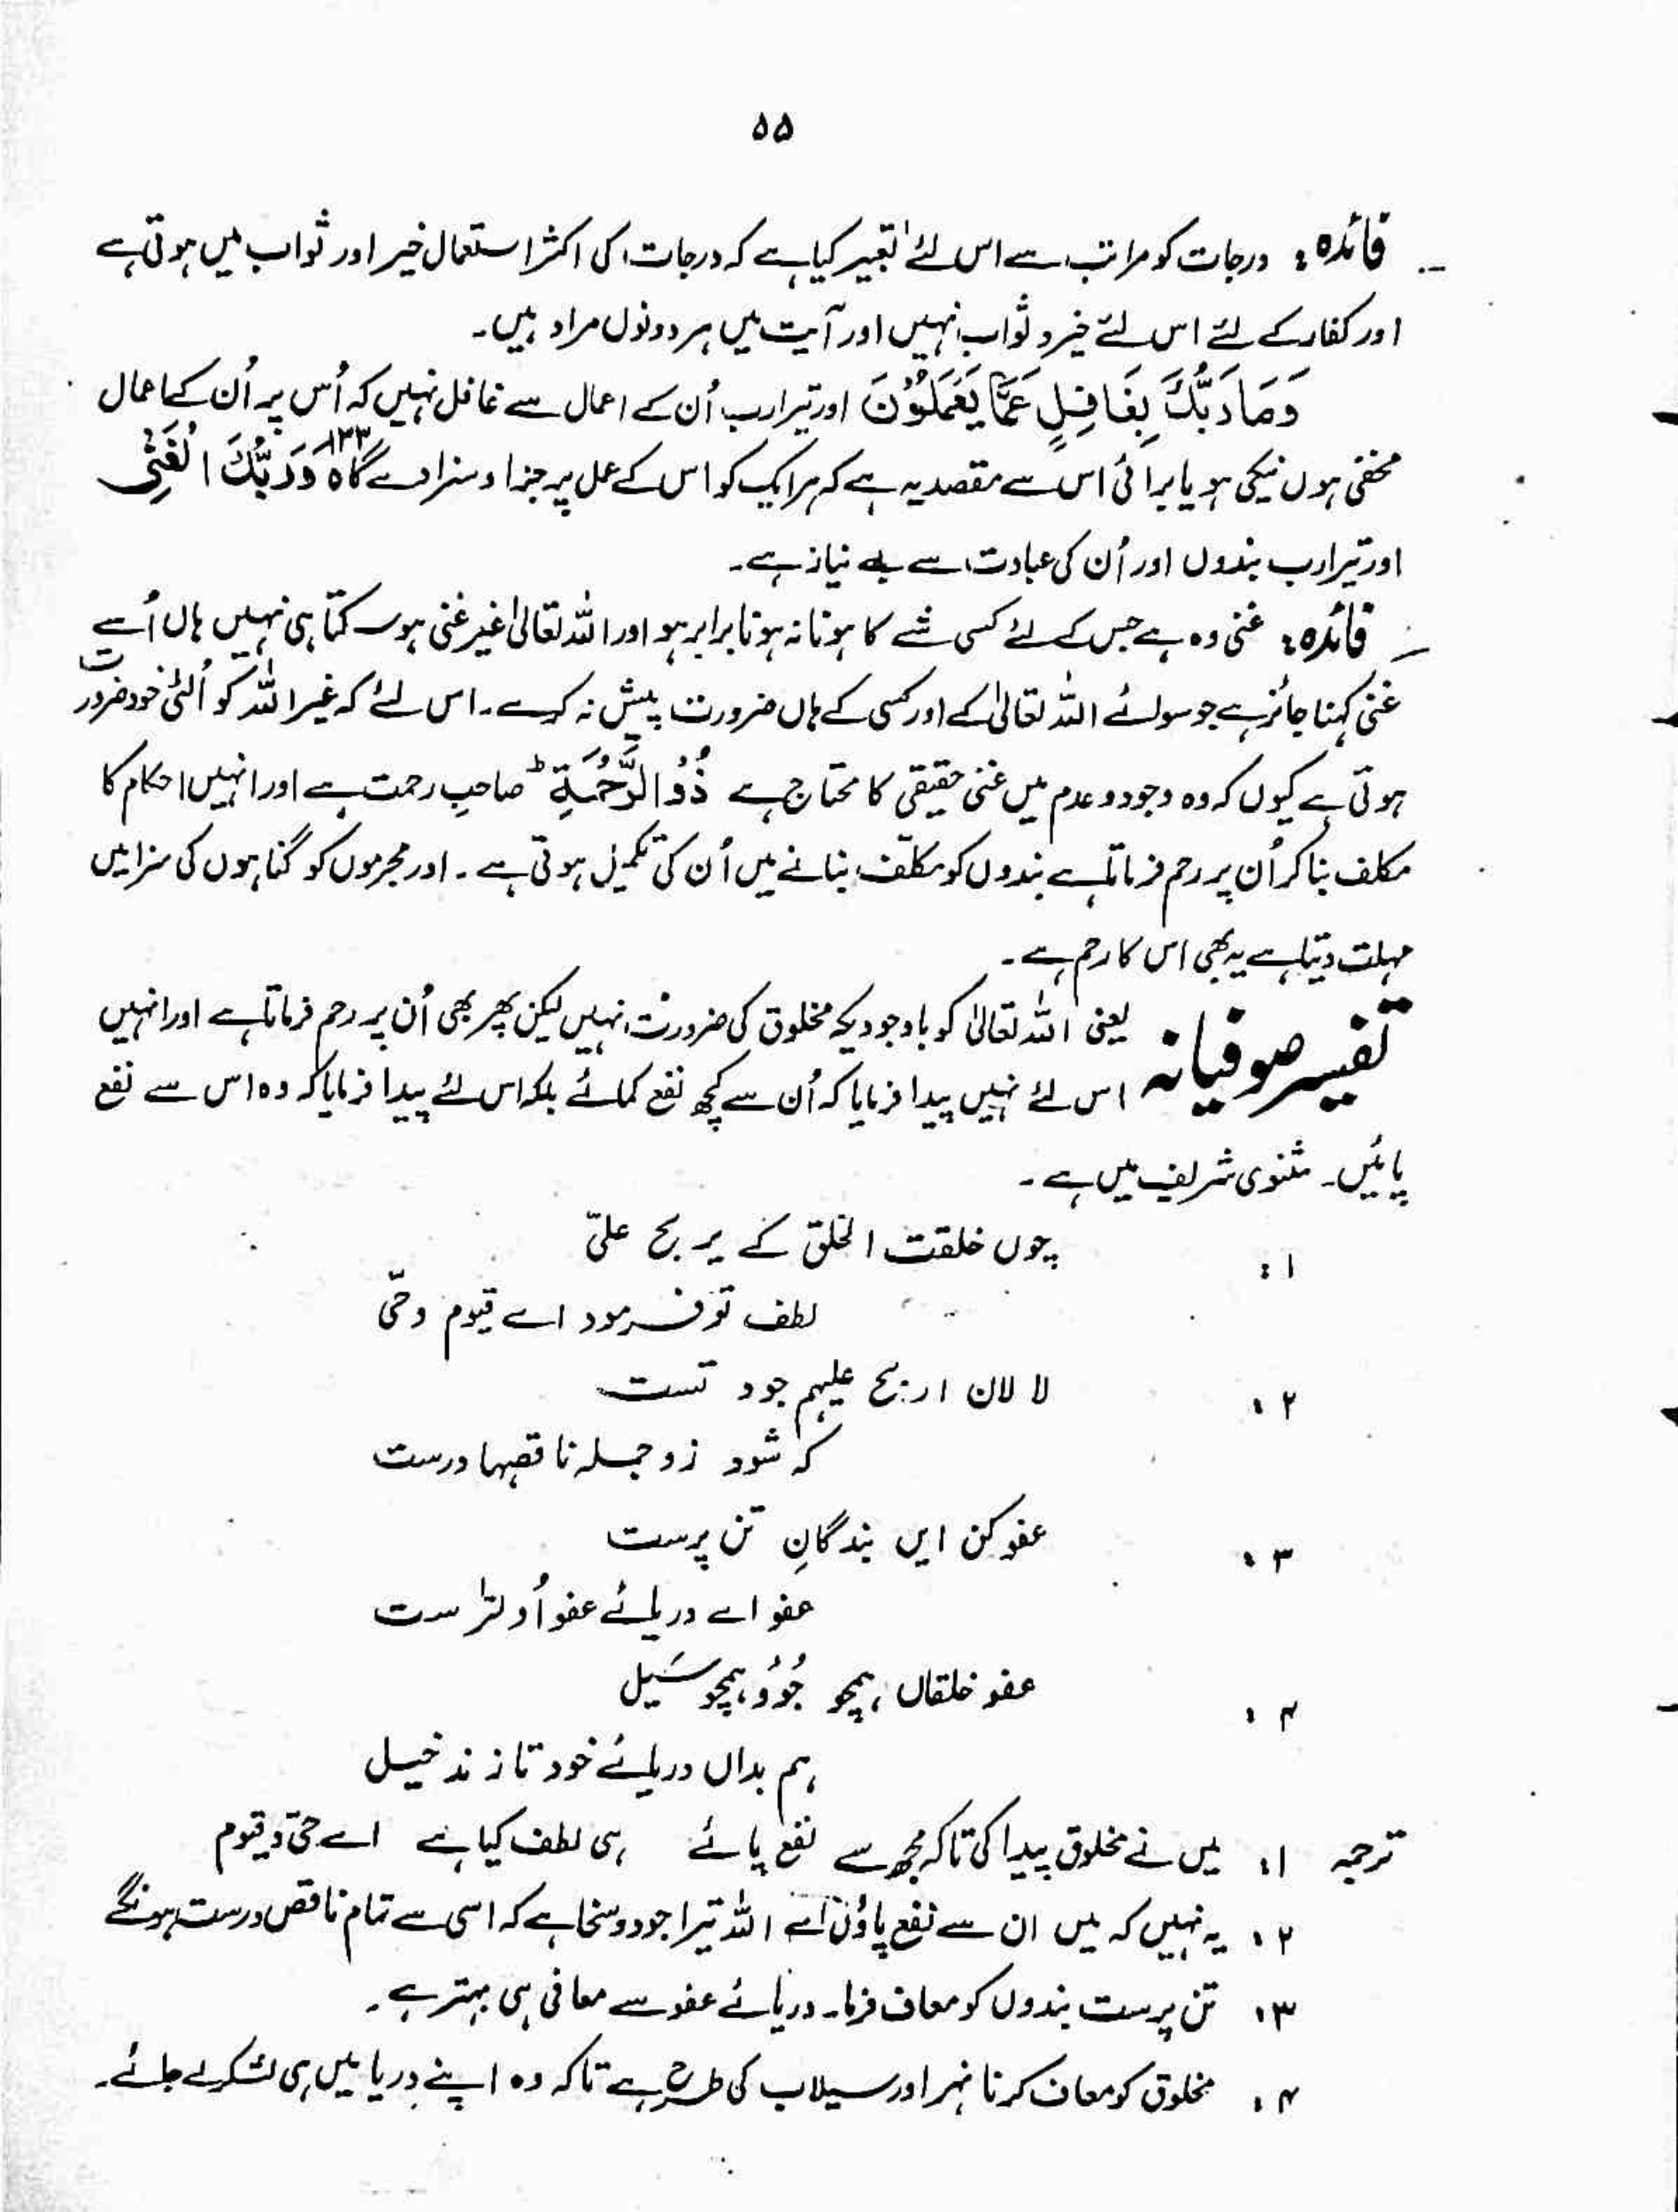 ۵۵
فائدہ: درجات کو مراتب سے اس لئے تعبیر کیا ہے کہ درجات کی اکثر استعمال خیر اور ثواب میں ہوتی ہے
اور کفار کے لئے اس لئے خیر و ثواب نہیں اور آیت میں ہر دونوں مراد ہیں۔
وَمَا رَبُّكَ بِغَافِلٍ عَمَّا يَعْمَلُوْنَ اور تیرا رب اُن کے اعمال سے غافل نہیں کہ اُس پر اُن کے اعمال
مخفی ہوں نیکی ہو یا برائی اس سے مقصد یہ ہے کہ ہر ایک کو اس کے عمل پر جزا و سزا دے گا ۱۳۲ وَرَبُّكَ الْغَنِیُّ
اور تیرا رب بندوں اور اُن کی عبادت سے بے نیاز ہے۔
فائدہ: غنی وہ ہے جس کے لئے کسی شے کا ہونا نہ ہونا برابر ہو اور اللہ تعالیٰ غیر غنی ہو سکتا ہی نہیں ہاں اُسے
غنی کہنا جائز ہے جو سوائے اللہ تعالیٰ کے اور کسی کے ہاں ضرورت پیش نہ کرے۔ اس لئے کہ غیر اللہ کو اُلٹی خود ضرورت
ہوتی ہے کیوں کہ وہ وجود و عدم میں غنی حقیقی کا محتاج ہے ذُو الرَّحْمَةِ ط صاحبِ رحمت ہے اور انہیں احکام کا
مکلف بنا کر اُن پر رحم فرماتا ہے بندوں کو مکلّف بنانے میں اُن کی تکمیل ہوتی ہے۔ اور مجرموں کو گناہوں کی سزا میں
مہلت دیتا ہے یہ بھی اس کا رحم ہے۔
تفسیر صوفیانہ یعنی اللہ تعالیٰ کو باوجودیکہ مخلوق کی ضرورت نہیں لیکن پھر بھی اُن پر رحم فرماتا ہے اور انہیں
اس لئے نہیں پیدا فرمایا کہ اُن سے کچھ نفع کمائے بلکہ اس لئے پیدا فرمایا کہ وہ اس سے نفع
پائیں۔ مثنوی شریف میں ہے۔
۱: چوں خلقت الخلق کے یر بح علیّ
لطف تو فرمود اے قیوم و حیّ
۲: لا لان اربح علیہم جود تست
کہ شود زو جملہ ناقصہا درست
۳: عفو کن ایں بندگانِ تن پرست
عفو اے دریائے عفو اُولٰتر ست
۴: عفو خلقاں ہمچو جُوْ وُ ہمچو سَیل
ہم بداں دریائے خود تازند خیل
ترجمہ ۱: میں نے مخلوق پیدا کی تاکہ مجھ سے نفع پائے ہی لطف کیا ہے اے حیّ و قیوم
۲: یہ نہیں کہ میں ان سے نفع پاؤں اے اللہ تیرا جود و سخا ہے کہ اسی سے تمام ناقص درست ہونگے
۳: تن پرست بندوں کو معاف فرما۔ دریائے عفو سے معافی ہی بہتر ہے۔
۴: مخلوق کو معاف کرنا نہر اور سیلاب کی طرح ہے تاکہ وہ اپنے دریا میں ہی لشکر لے جائے۔